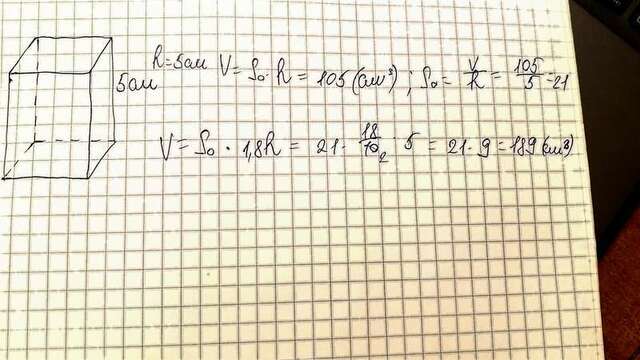 h=5см V = Sо · h = 105 (см³) ; Sо = V/h = 105/5 = 21
5см
V = Sо · 1,8h = 21 · 18/10 2 · 5 = 21 · 9 = 189 (см³)